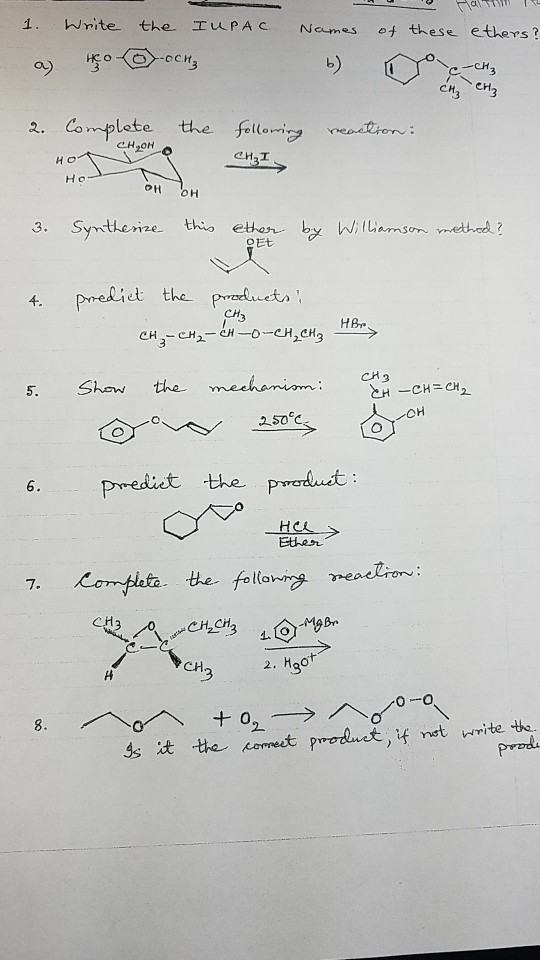 1. Write the IUPAC Names of these ethers?
a) H3CO -OCH3
b) O C -CH3 CH3 CH3
2. Complete the following reaction:
CH2OH
HO HO OH OH
CH3I
3. Synthesize this ether by Williamson method?
OEt
4. predict the products:
CH3
CH3-CH2-CH-O-CH2CH3 HBr
5. Show the mechanism:
CH3
CH-CH=CH2
O 250°C OH
6. predict the product:
O
HCl
Ether
7. Complete the following reaction:
CH3 O CH2CH3 1. -MgBr
C-C
H CH3 2. H3O+
8. O + O2 → O O-O
Is it the correct product, if not write the